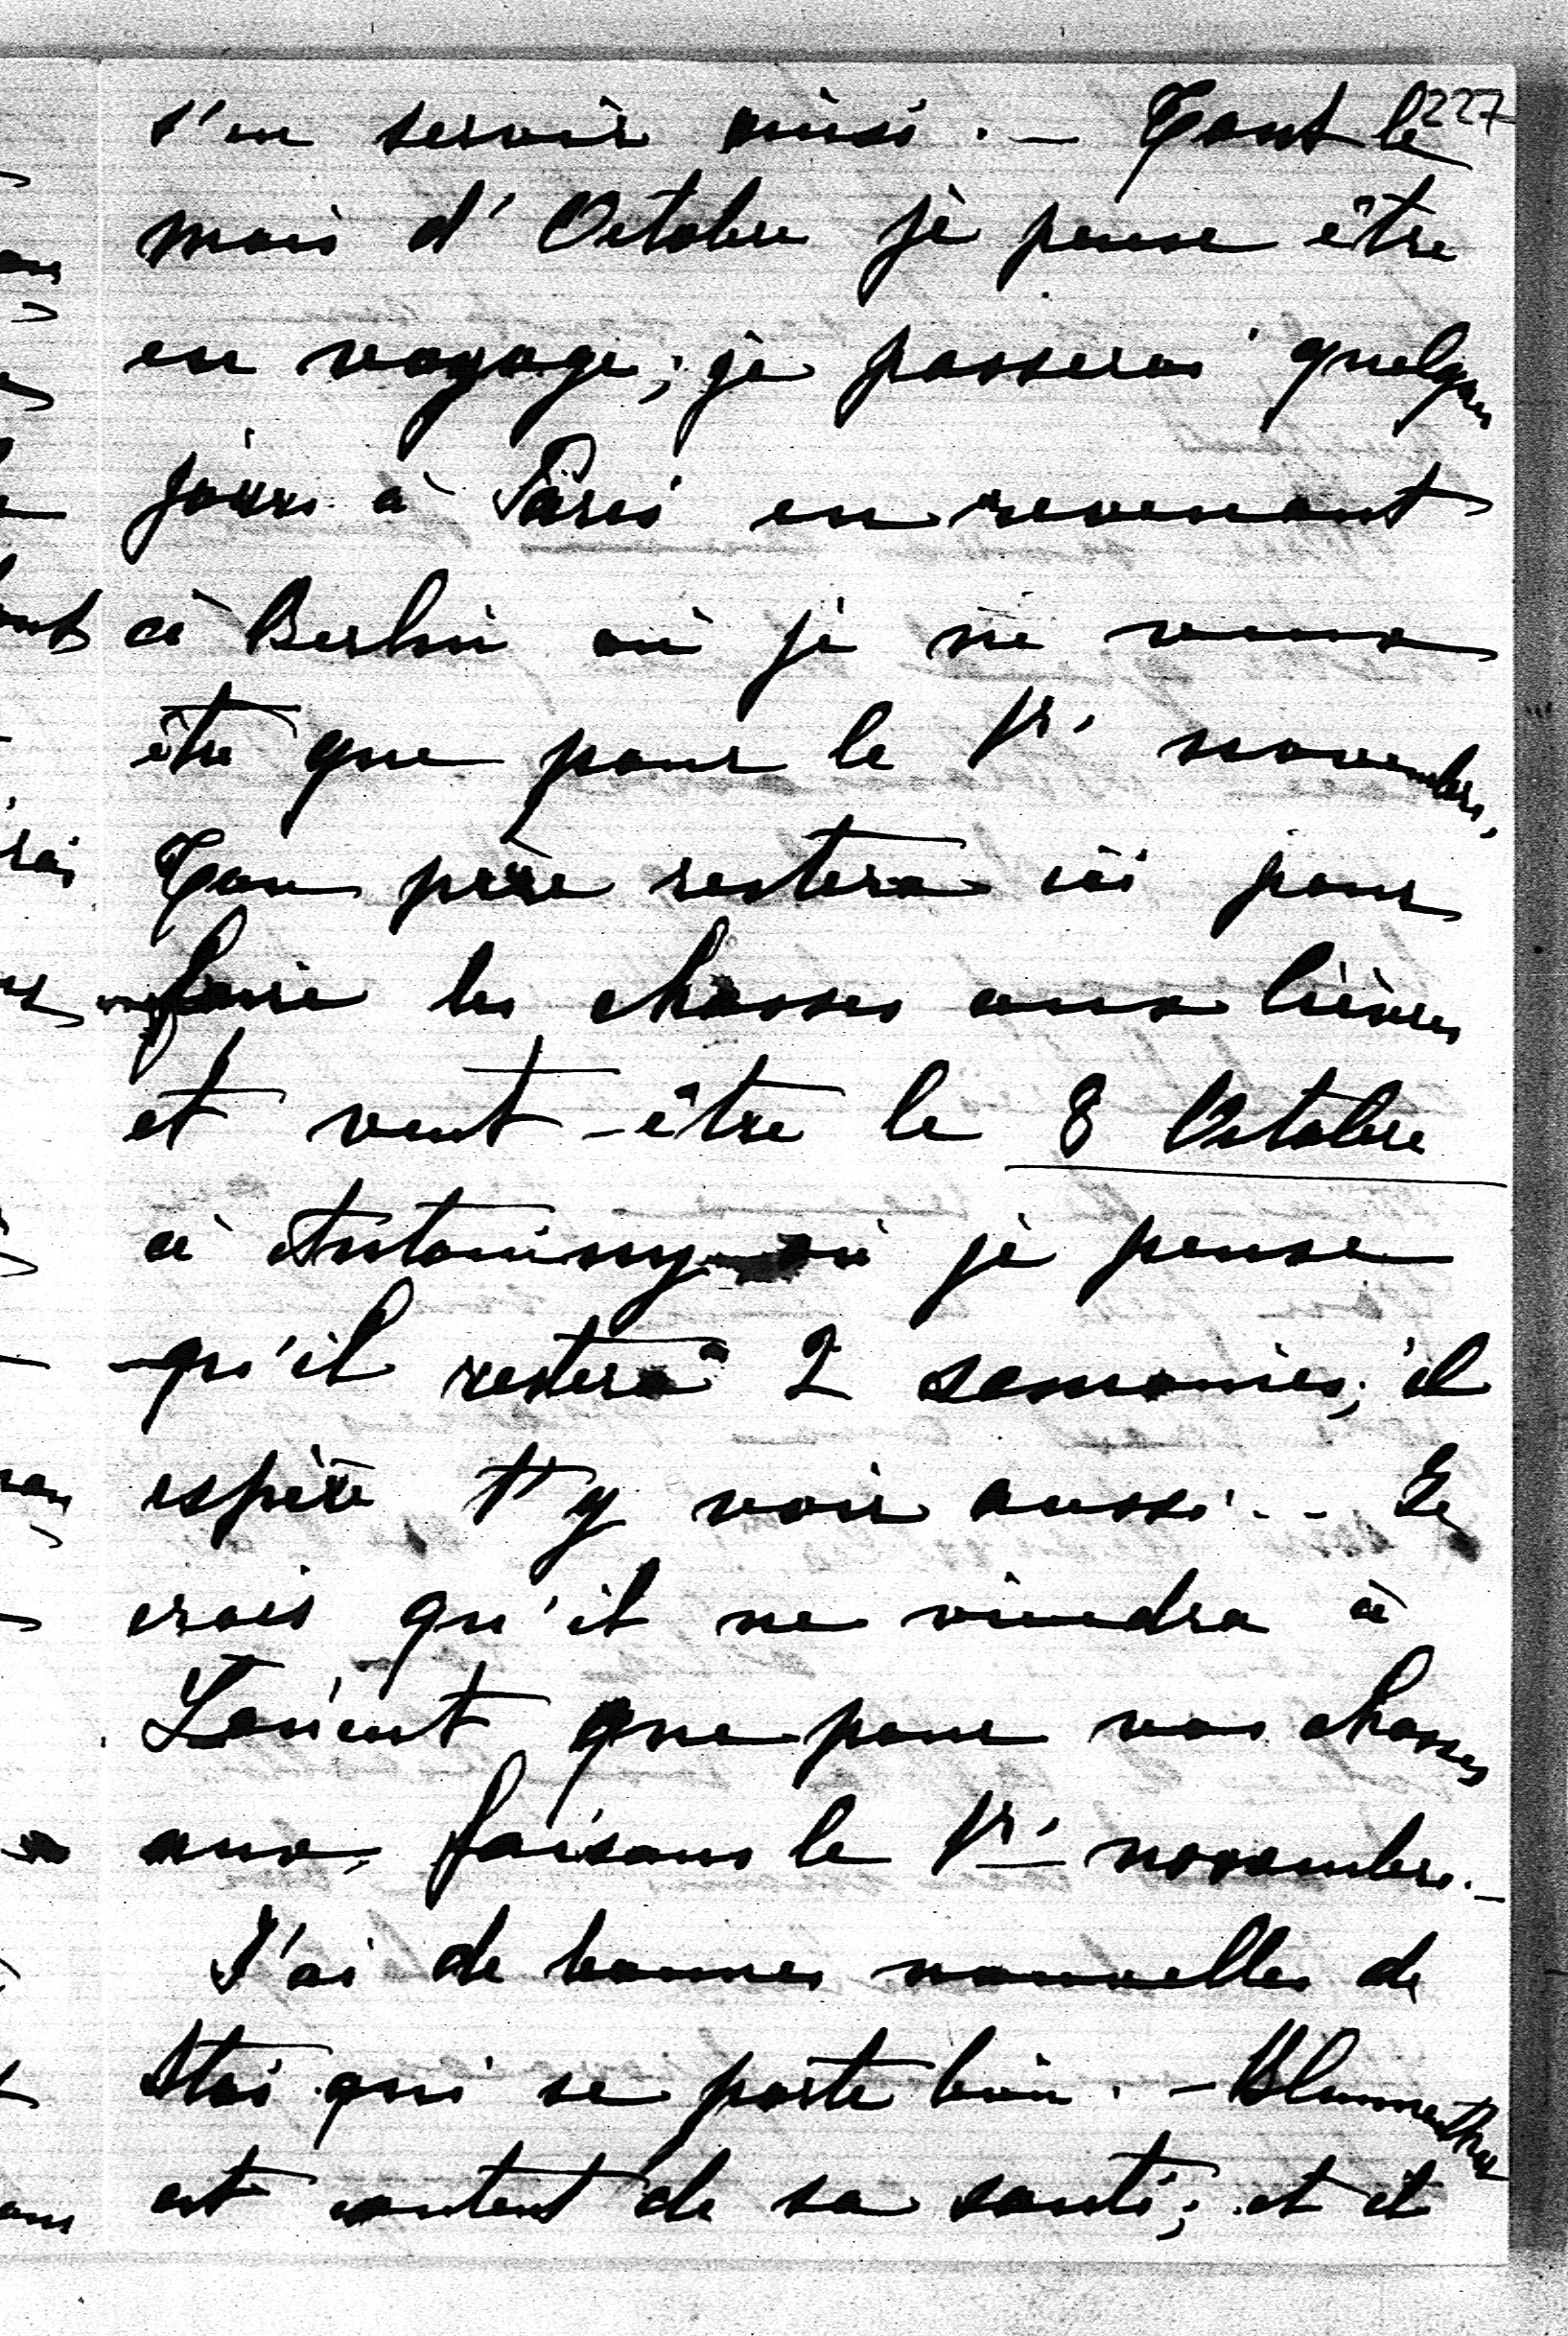 s'en servir ainsi. — Tout le 227
mois d'Octobre je pense être
en voyage; je passerai quelques
jours à Paris en revenant
à Berlin où je ne veux
être que pour le 1r novembre.
Ton père restera ici pour
faire les chasses aux lièvres
et veut-être le 8 Octobre
à Antoniny où je pense
qu'il restera 2 semaines; il
espère t'y voir aussi. - Je
crois qu'il ne viendra à
que pour vos chasses
aux faisans le 1r novembre. —
J'ai de bonnes nouvelles de
Stas qui se porte bien. — Blumenthal
est content de sa santé; et il